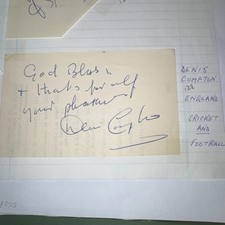 God Bless
+ thanks for all
your pleasure
Denis Compton
DENIS
COMPTON
ENGLAND
CRICKET
AND
FOOTBALL